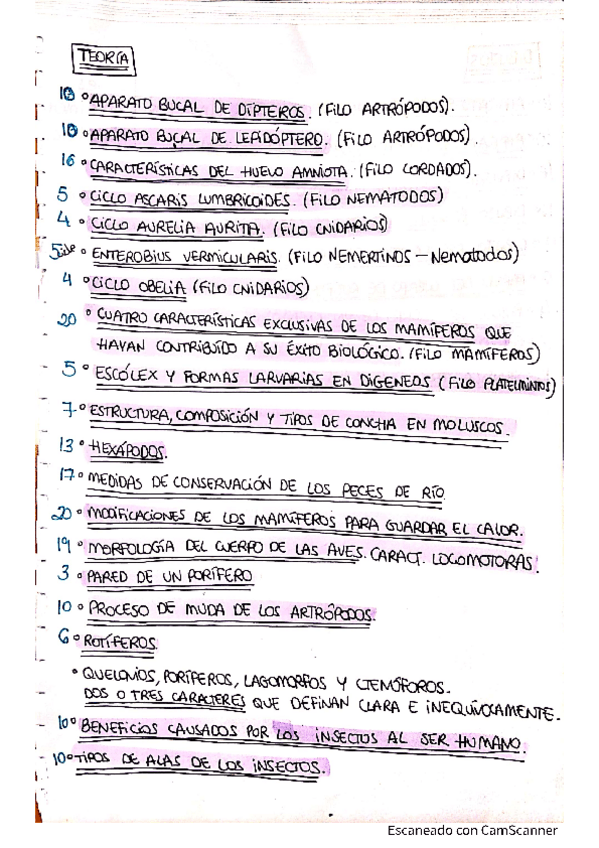 TEORÍA
10 º APARATO BUCAL DE DÍPTEROS. (FILO ARTRÓPODOS).
10 º APARATO BUCAL DE LEPIDÓPTERO. (FILO ARTRÓPODOS).
16 º CARACTERÍSTICAS DEL HUEVO AMNIOTA. (FILO CORDADOS).
5 º CICLO ASCARIS LUMBRICOIDES. (FILO NEMATODOS)
4 º CICLO AURELIA AURITA. (FILO CNIDARIOS)
5 º ENTEROBIUS VERMICULARIS. (FILO NEMERTINOS — Nematodos)
4 º CICLO OBELIA (FILO CNIDARIOS)
20 º CUATRO CARACTERÍSTICAS EXCLUSIVAS DE LOS MAMÍFEROS QUE
HAYAN CONTRIBUÍDO A SU ÉXITO BIOLÓGICO. (FILO MAMÍFEROS)
5 º ESCÓLEX Y FORMAS LARVARIAS EN DIGENEOS (FILO PLATELMINTOS)
7 º ESTRUCTURA, COMPOSICIÓN Y TIPOS DE CONCHA EN MOLUSCOS.
13 º HEXÁPODOS.
17 º MEDIDAS DE CONSERVACIÓN DE LOS PECES DE RÍO
20 º MODIFICACIONES DE LOS MAMÍFEROS PARA GUARDAR EL CALOR.
19 º MORFOLOGÍA DEL CUERPO DE LAS AVES. CARACT. LOCOMOTORAS.
3 º PARED DE UN PORÍFERO
10 º PROCESO DE MUDA DE LOS ARTRÓPODOS.
6 º ROTÍFEROS.
º QUELONIOS, PORÍFEROS, LAGOMORFOS Y CTENÓFOROS.
DOS O TRES CARACTERES QUE DEFINAN CLARA E INEQUÍVOCAMENTE.
10 º BENEFICIOS CAUSADOS POR LOS INSECTOS AL SER HUMANO.
10 º TIPOS DE ALAS DE LOS INSECTOS.
Escaneado con CamScanner